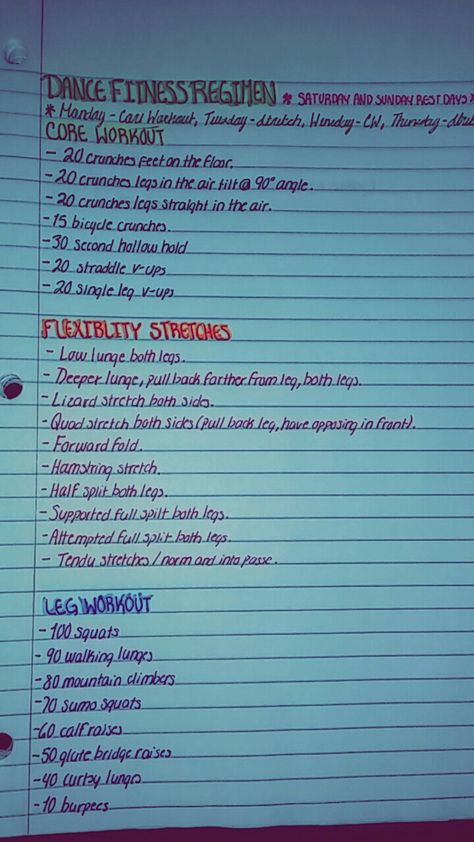 DANCE FITNESS REGIMEN * SATURDAY AND SUNDAY REST DAYS *
* Monday - Core Workout, Tuesday - stretch, - CW, Thursday -
CORE WORKOUT
- 20 crunches feet on the floor.
- 20 crunches legs in the air tilt @ 90° angle.
- 20 crunches legs straight in the air.
- 15 bicycle crunches.
- 30 second hollow hold
- 20 straddle v-ups
- 20 single leg v-ups
FLEXIBLITY STRETCHES
- Low lunge both legs.
- Deeper lunge, pull back farther from leg, both legs.
- Lizard stretch both sides.
- Quad stretch both sides (pull back leg, have opposing in front).
- Forward fold.
- Hamstring stretch.
- Half split both legs.
- Supported full spilt both legs.
- Attempted full split both legs.
- Tendu stretches / norm and into passe.
LEG WORKOUT
- 100 squats
- 90 walking lunges
- 80 mountain climbers
- 70 sumo squats
- 60 calf raises
- 50 glute bridge raises
- 40 curtsy lunges
- 10 burpees